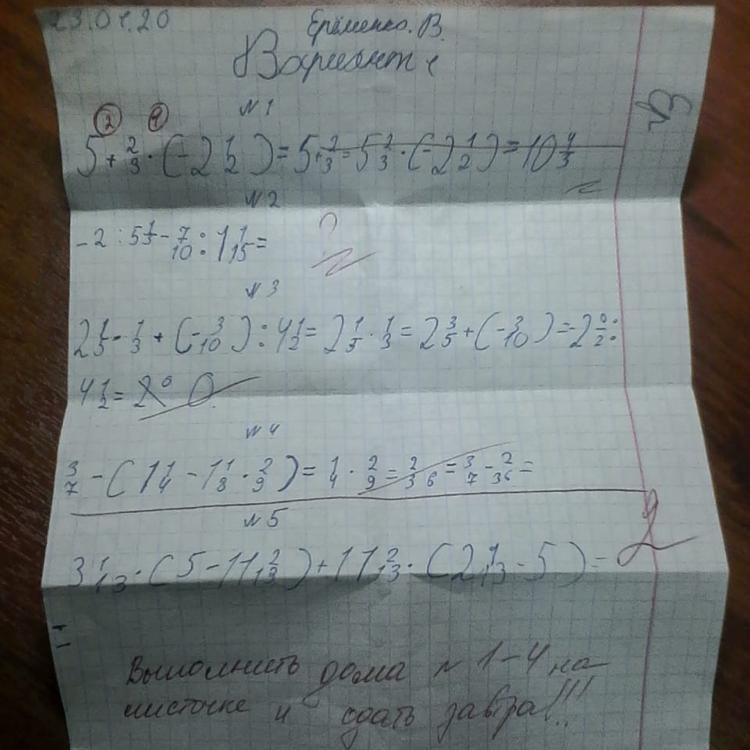 23.01.20
Ерёменко. В.
Вариант 1
② ①
№1
5 + 2/3 · (-2 1/2) = 5 + 2/3 = 5 2/3 · (-2 1/2) = 10 4/3
№2
-2 : 5 1/3 - 7/10 : 1 1/15 =
?
№3
2 1/5 · 1/3 + (-3/10) : 4 1/2 = 2 1/5 · 1/3 = 2 3/5 + (-3/10) = -2 0/2 :
4 1/2 = 2 0 0
№4
3/7 - (1 1/4 - 1 1/8 · 2/9) = 1/4 · 2/9 = 2/36 = 3/7 - 2/36 =
№5
3 1/13 · (5 - 11 2/3) + 11 2/3 · (2 1/13 - 5) =
2
Выполнить дома №1-4 на
листочке и сдать завтра!!!